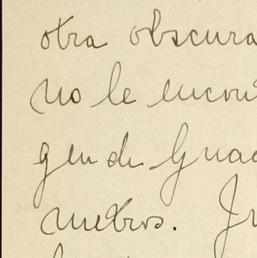 otra obscura
no le encon
gen de Guad
metros. Ju